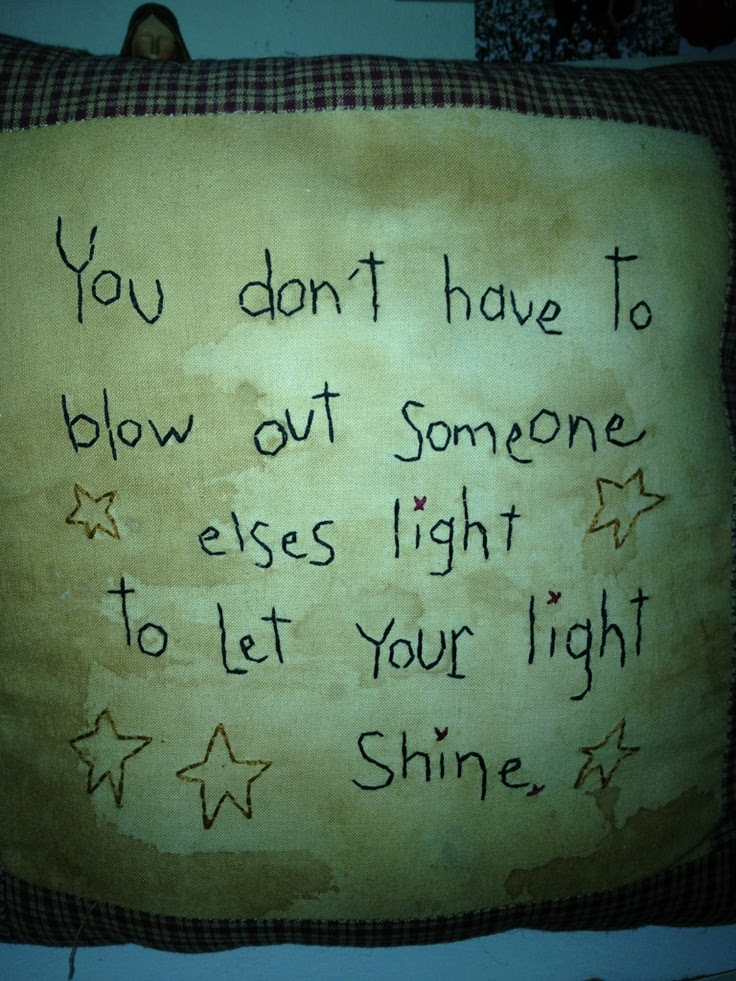 You don't have to
blow out someone
elses light
to Let Your light
Shine.